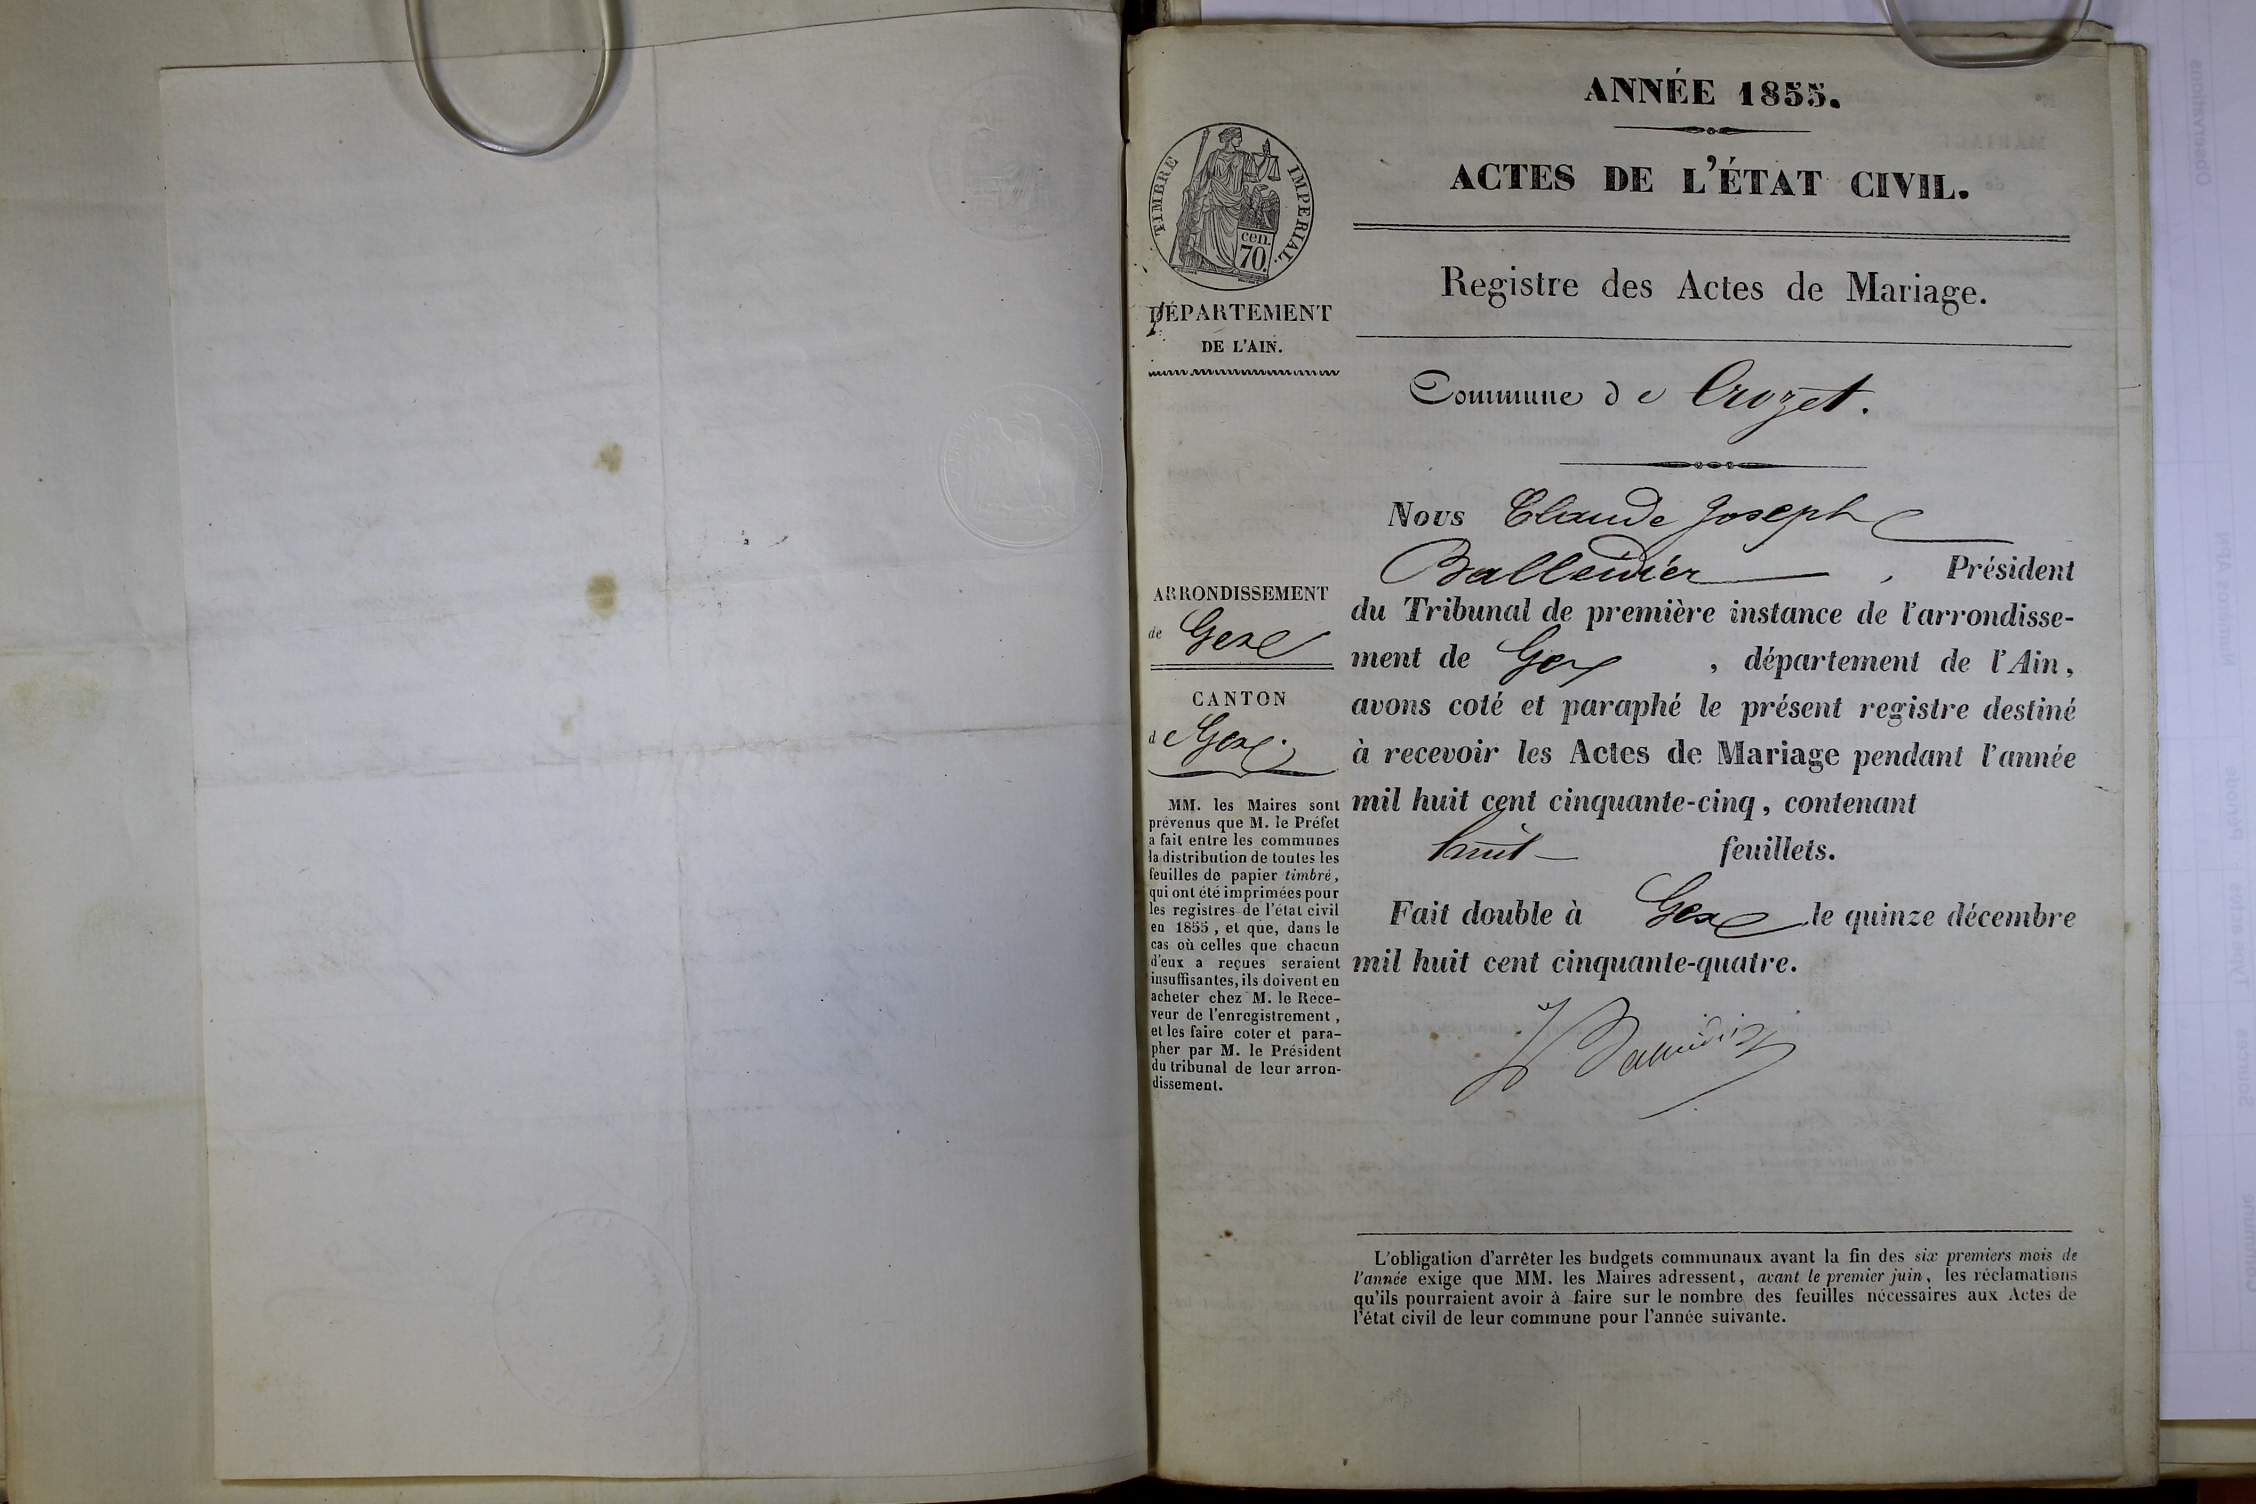 ANNÉE 1855.
ACTES DE L'ÉTAT CIVIL.
TIMBRE IMPERIAL.
cen.
70.
Registre des Actes de Mariage.
DÉPARTEMENT
DE L'AIN.
Commune de Crozet.
Nous Claude Joseph
Balleidier, Président
du Tribunal de première instance de l'arrondisse-
ment de Gex, département de l'Ain,
avons coté et paraphé le présent registre destiné
à recevoir les Actes de Mariage pendant l'année
mil huit cent cinquante-cinq, contenant
huit feuillets.
Fait double à Gex le quinze décembre
mil huit cent cinquante-quatre.
ARRONDISSEMENT
de Gex
CANTON
de Gex.
MM. les Maires sont
prévenus que M. le Préfet
a fait entre les communes
la distribution de toutes les
feuilles de papier timbré,
qui ont été imprimées pour
les registres de l'état civil
en 1855, et que, dans le
cas où celles que chacun
d'eux a reçues seraient
insuffisantes, ils doivent en
acheter chez M. le Rece-
veur de l'enregistrement,
et les faire coter et para-
pher par M. le Président
du tribunal de leur arron-
dissement.
L'obligation d'arrêter les budgets communaux avant la fin des six premiers mois de
l'année exige que MM. les Maires adressent, avant le premier juin, les réclamations
qu'ils pourraient avoir à faire sur le nombre des feuilles nécessaires aux Actes de
l'état civil de leur commune pour l'année suivante.